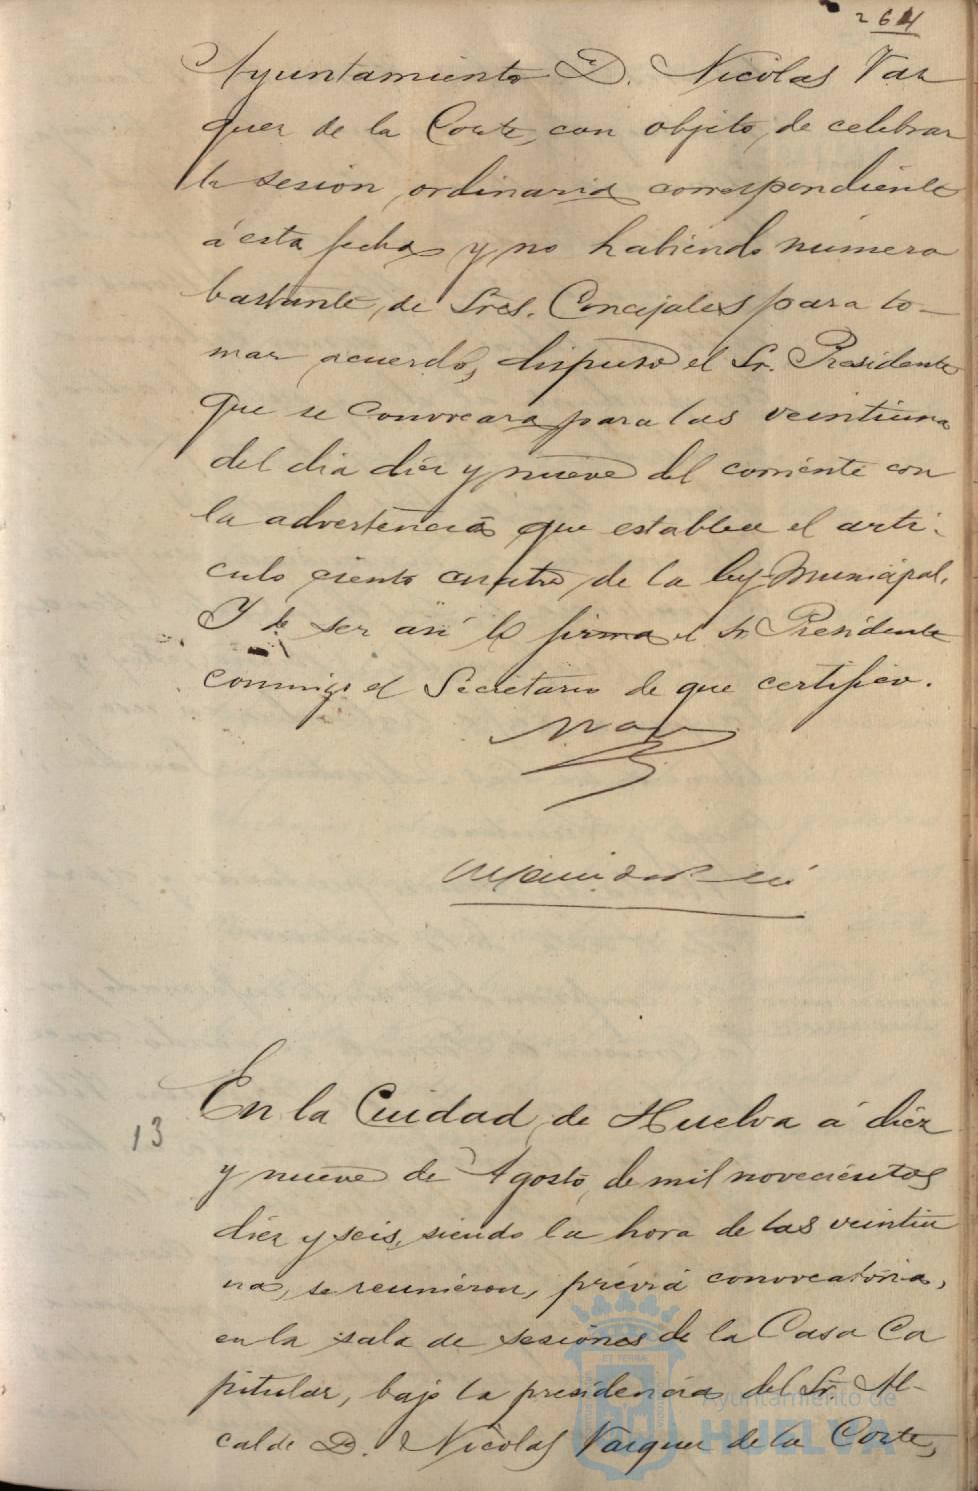 264
Ayuntamiento D. Nicolas Vaz
quez de la Corte, con objeto, de celebrar
la sesion ordinaria correspondiente
á esta fecha y no habiendo número
bastante, de Sres. Concejales para to-
mar acuerdo, dispuso el Sr. Presidente
que se convocara para las veintiuna
del dia diéz y nueve del corriente con
la advertencia que establece el arti-
culo ciento cuatro de la ley Municipal.
Y de ser asi lo firma el Sr Presidente
conmigo el Secretario de que certifico.
13
En la Cuidad, de Huelva á diéz
y nueve de Agosto, de mil novecientos
diéz y seis, siendo la hora de las veintiu
na, se reunieron, prévia convocatoria,
en la sala de sesiones de la Casa Ca
pitular, bajo la presidencia del Sr. Al-
calde D. Nicolas Vazquez de la Corte,
Ayuntamiento de
HUELVA